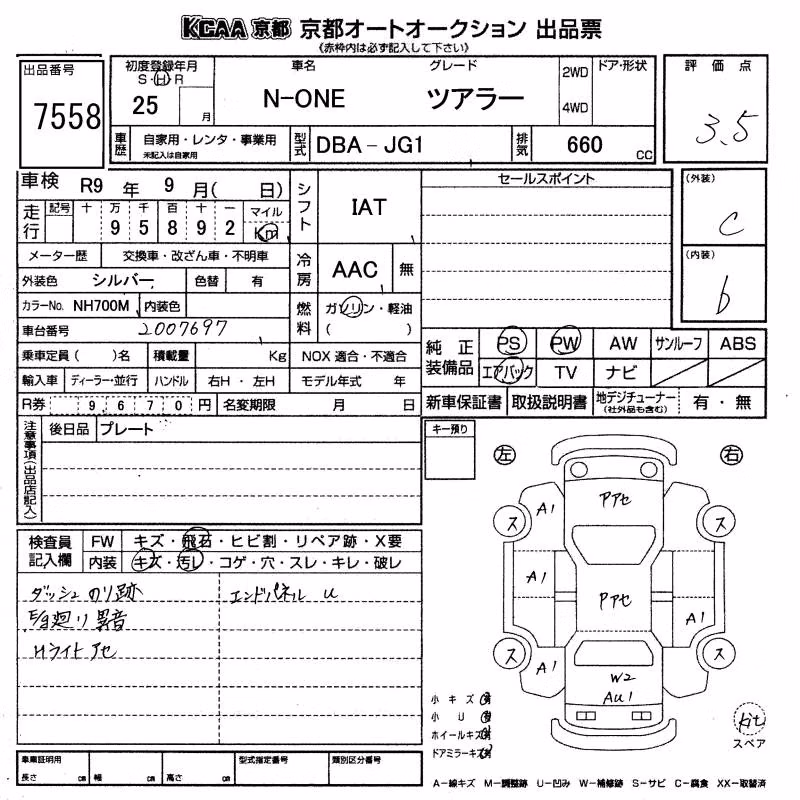 KCAA 京都 京都オートオークション 出品票
《赤枠内は必ず記入して下さい》
出品番号 7558
初度登録年月 S・H・R 25 月
車名 N-ONE
グレード ツアラー
2WD 4WD
ドア・形状
評価点 3.5
車歴 自家用・レンタ・事業用 未記入は自家用
型式 DBA-JG1
排気 660 CC
車検 R9 年 9 月( 日)
シフト IAT
セールスポイント
(外装) C
走行 記号 十 万 千 百 十 一 マイル
9 5 8 9 2 Km
メーター歴 交換車・改ざん車・不明車
冷房 AAC 無
(内装) b
外装色 シルバー 色替 有
カラーNo. NH700M 内装色
燃料 ガソリン・軽油 ( )
車台番号 2007697
純正装備品 PS PW AW サンルーフ ABS
エアバック TV ナビ
乗車定員( )名 積載量 Kg NOX 適合・不適合
輸入車 ディーラー・並行 ハンドル 右H・左H モデル年式 年
R券 9 6 7 0 円 名変期限 月 日
新車保証書 取扱説明書 地デジチューナー (社外品も含む) 有・無
注意事項(出品店記入)
後日品 プレート
キー預り
左 右
検査員記入欄
FW キズ・飛石・ヒビ割・リペア跡・X要
内装 キズ・汚レ・コゲ・穴・スレ・キレ・破レ
ダッシュ のり跡 エンドパネル U
廻り 異音
Hライト アセ
A1 アアセ
ス ス
A1 アアセ A1
ス ス
A1 W2
AU1
小キズ有
小U有
ホイールキズ有
ドアミラーキズ有
Kit
スペア
車庫証明用 型式指定番号 類別区分番号
長さ cm 幅 cm 高さ cm
A-線キズ M-調整跡 U-凹み W-補修跡 S-サビ C-腐食 XX-取替済